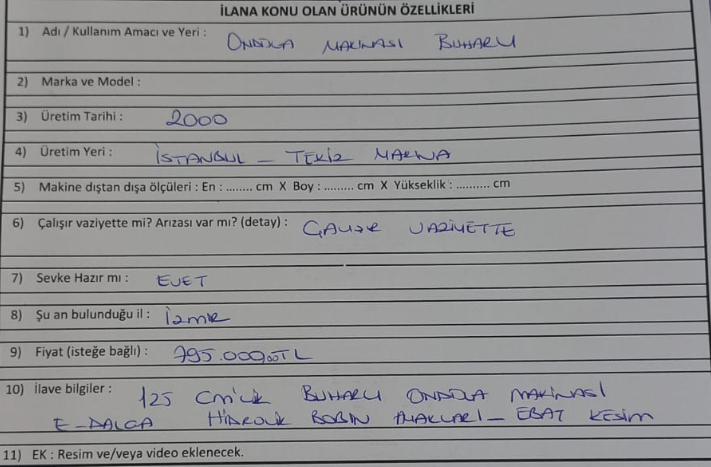 İLANA KONU OLAN ÜRÜNÜN ÖZELLİKLERİ
1) Adı / Kullanım Amacı ve Yeri : ONDÜLA MAKİNASI BUHARLI
2) Marka ve Model :
3) Üretim Tarihi : 2000
4) Üretim Yeri : İSTANBUL – TEKİZ MAKİNA
5) Makine dıştan dışa ölçüleri : En : ........ cm X Boy : ......... cm X Yükseklik : .......... cm
6) Çalışır vaziyette mi? Arızası var mı? (detay) : ÇALIŞIR VAZİYETTE
7) Sevke Hazır mı : EVET
8) Şu an bulunduğu il : İZMİR
9) Fiyat (isteğe bağlı) : 795.000,00TL
10) İlave bilgiler : 125 CM'LİK BUHARLI ONDÜLA MAKİNASI
E-DALGA HİDROLİK BOBİN AYAKLARI – EBAT KESİM
11) EK : Resim ve/veya video eklenecek.